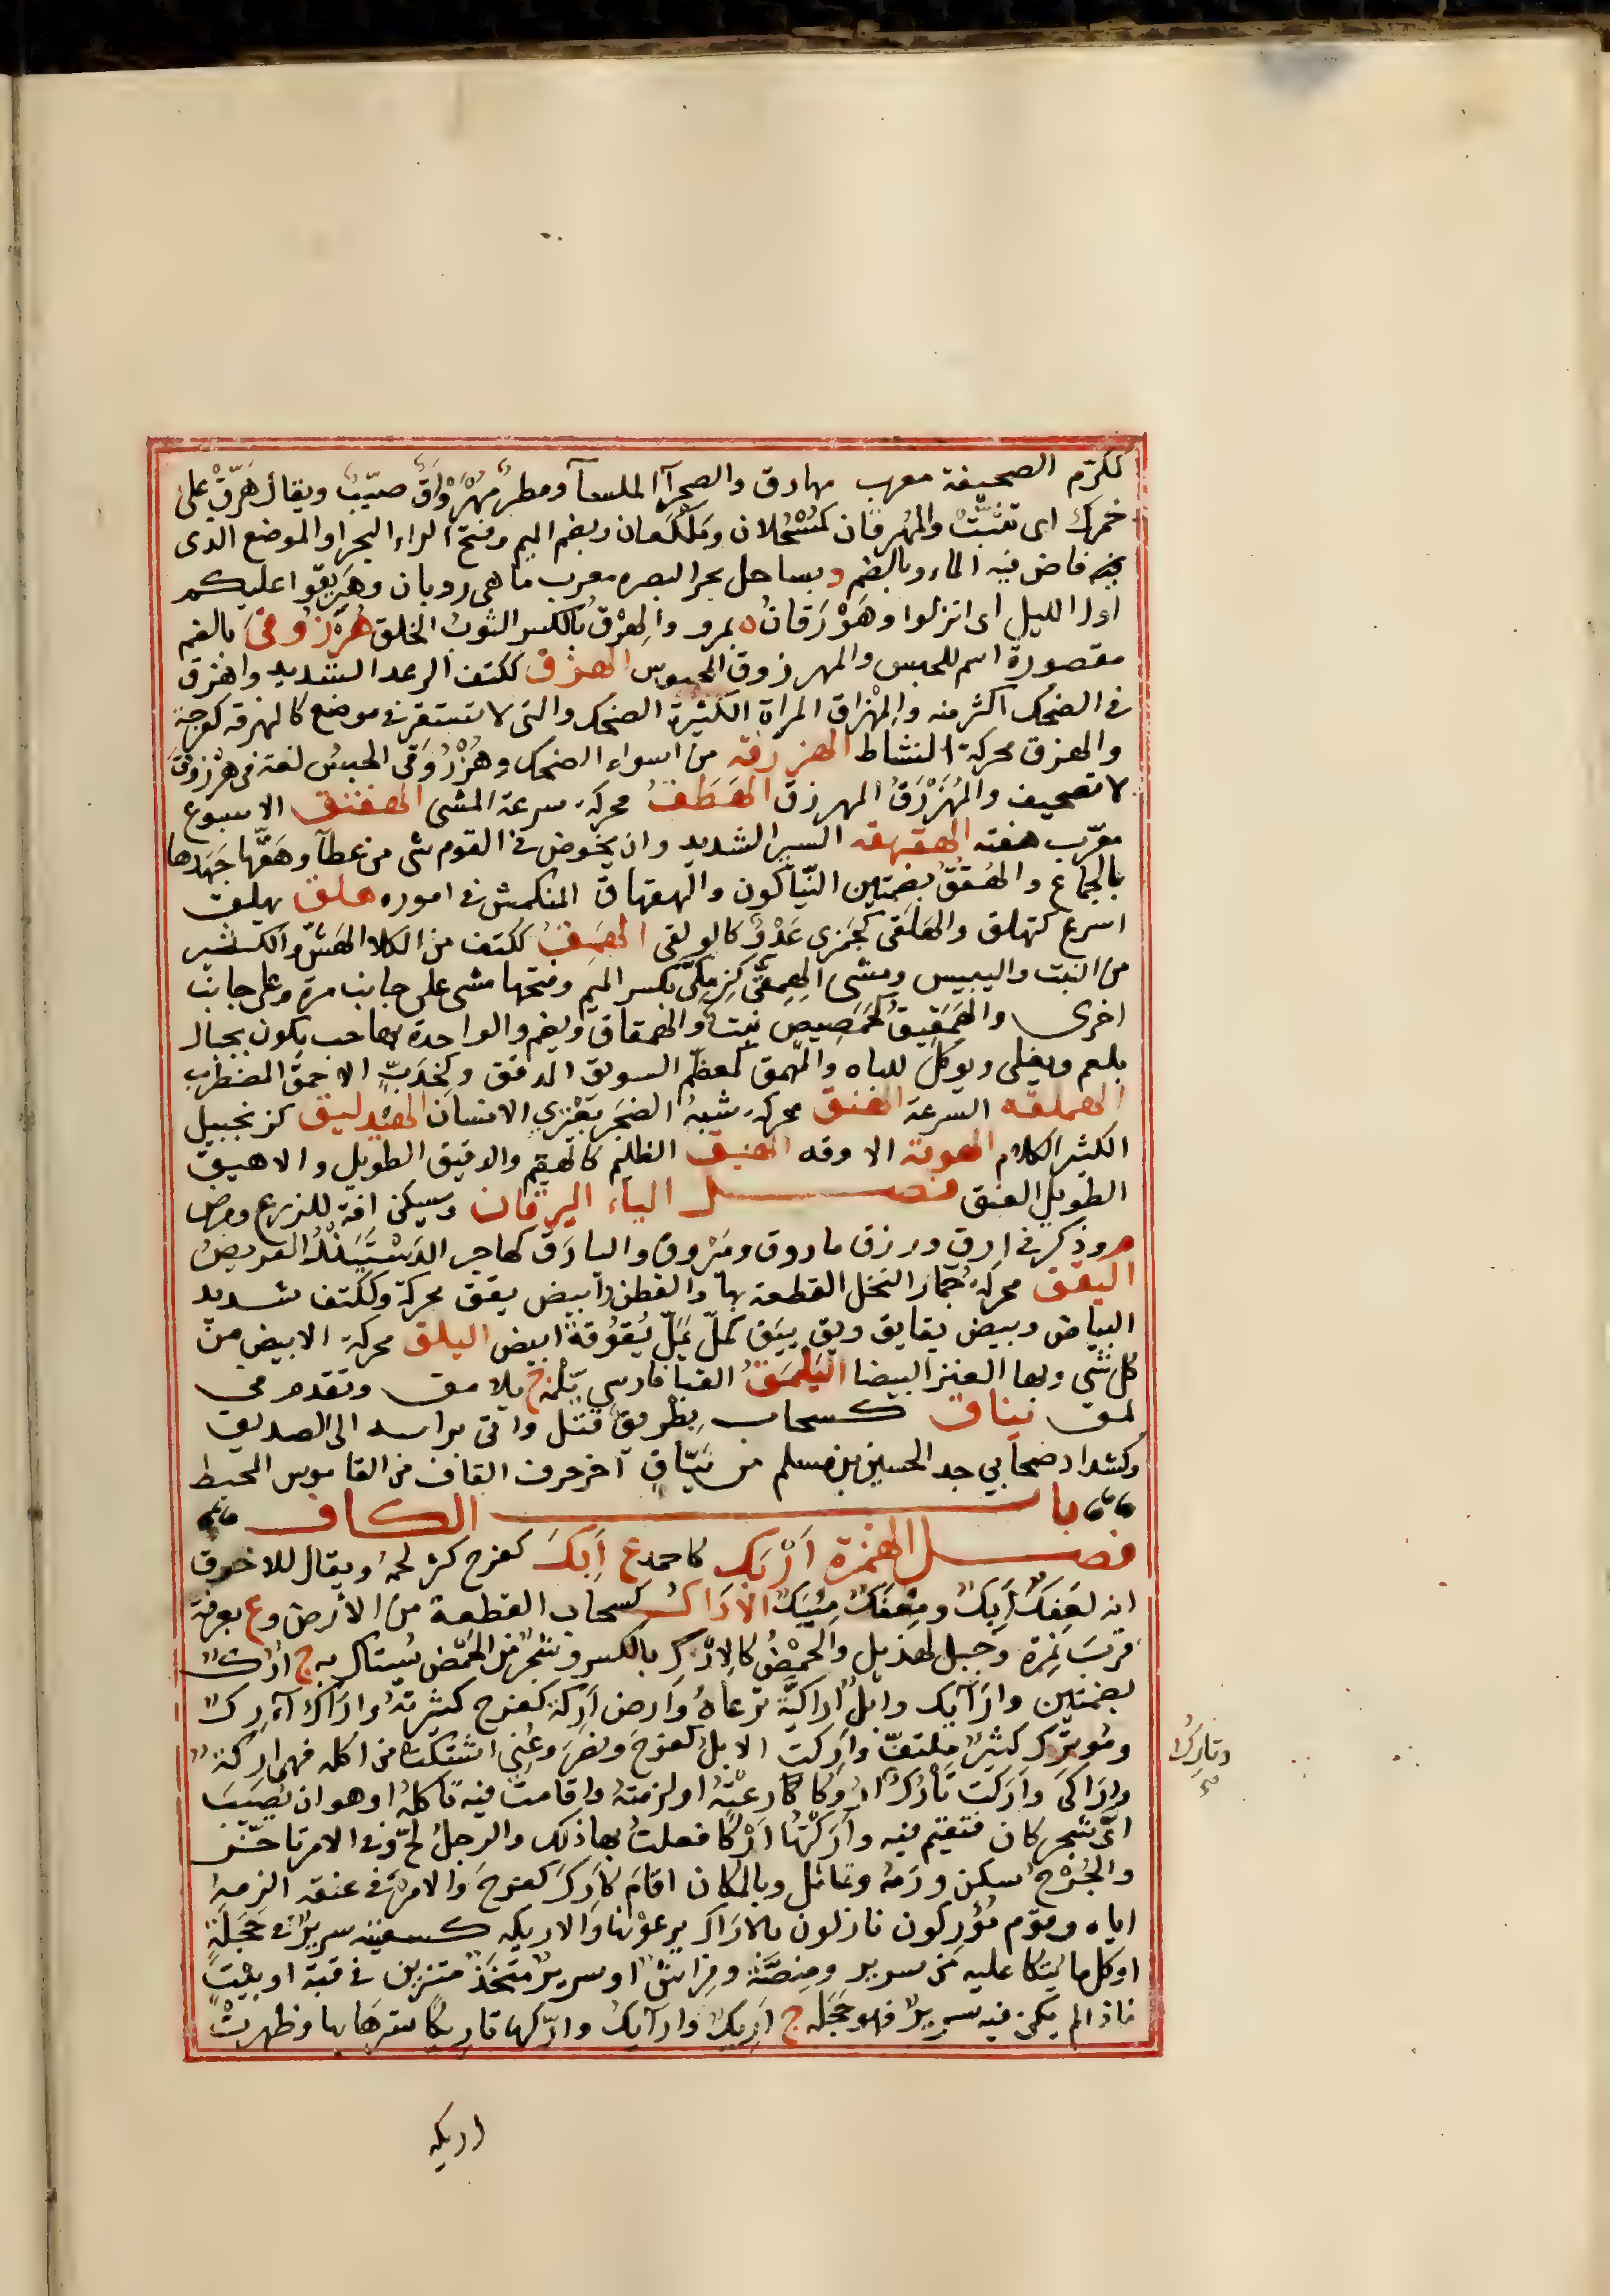 كمكرم الصحيفة معرب مهارق والصحرآ الملسآ ومطرٌ مُهْرَوْرَقٌ صيّبٌ ويقال هَرِّقْ على
خمرك اى تثبّتْ والمُهرقان كمُسْحُلان ومَلْكَعان وبضم الميم وفتح الراء البحر او الموضع الذى
فاض فيه الماء وبالضم د بساحل بحر البصره معرب ماهى رويان وهَرِيقوا عليكم
اول الليل اى انزلوا وهَوْرَقانُ ه بمرو والهِرْقُ بالكسر الثوبُ الخلق هُرْزُوقى بالضم
مقصورة اسم للحبس والمهرزوق المحبوس الهزق ككتف الرعد الشديد واهزق
فى الضحك اكثر منه والمِهْزاق المراة الكثيرة الضحك والتى لا تستقر فى موضع كالهزقه كفرحة
والهزق محركة النشاط الهزرقه من اسواء الضحك وهُزْرُوقى الحبسُ لغة فى هرزوقى
لا تصحيف والمُهَزْرَقُ المهرزق الهَطَقُ محركة سرعة المشى الهفتق الاسبوع
معرّب هفته الهقهقه السير الشديد وان يخوض فى القوم شى من عطآ وهَقّها جَهَدها
بالجماع والهُقُقُ بضمتين النيّاكون والهقهاق المنكمش فى اموره هلق يهلق
اسرع كتهلق والهَلَقى كجَمَزى عَدْوٌ كالولقى الهَمِقُ ككتف من الكلا الهَشّ والكثير
من النبت واليبيس ومشى الهِمِقّى كزِمِكّى بكسر الميم وفتحها مشى على جانب مرة وعلى جانب
اخرى والهَمَقِيقُ كحَمَصِيصٍ نبت والهمقاق ويضم والواحدة بها حب يكون بجبال
بلعم ويقلى ويوكل للباه والمهمق كمعظّم السويق المدقق وكخِدَبٍّ الاحمق المضطرب
الهملقه السرعة الهنق محركة شبهُ الضجر يَعْتري الانسان الهندليق كزنجبيل
الكثير الكلام الهوقة الاوقه الهيق الظليم كالهيقم والدقيق الطويل والاهيق
الطويل العنق فصل الياء اليرقان ويسكن افة للزرع ومرض
م وذكر فى ارق وزرق ماروق وميروق واليارق كهاجر الدَسْتَبَنْدُ العريض
اليقق محركة جُمار النخل القطعة بها والقطن وابيض يقق محركة وككتف شديد
البياض وبيض يقايق ويق ييق كملّ يملّ يُقُوقةً ابيض اليلق محركة الابيض من
كل شى وبها العنز البيضا اليَلْمَقُ القبا فارسى يَلْمَه ج يلامق وتقدم فى
لمق يناق كسحاب بِطْرِيقٌ قتل واتى براسه الى الصديق
وكشداد صحابي جد الحسين بن مسلم من يَنّاقٍ آخر حرف القاف من القاموس المحيط
باب الكاف
فصل الهمزة اَرْبَك كاحمد ع اَبِكَ كفرح كثر لحمه ويقال للاخرق
انه لعَفِكٌ اَبِكٌ ومِعْفَكٌ مِئْبَكٌ الاَرَاكُ كسحاب القطعة من الأرض وع بعرفة
قربَ نمِرة وجبل لهذيل والحَمْضُ كالاِرْك بالكسر وشجرٌ من الحَمْض يُستاك به ج اُرُكٌ
بضمتين وارآيك وابلٌ اراكيّة ترعاه وارض اَرِكة كفرح كثيرته واراك آرِكٌ
ومُوترك كثير ملتفّ واَرِكت الابل كفرحَ ونصَر وعُنِى اشتكت من اكله فهى اركة
واَرَاكَى وارَكت تَأْرُك اُرُوكا رعَتْهُ او لزمته واقامت فيه تاكله او هو ان تُصِيبَ
اىّ شجر كان فتقيم فيه واَرَكْتُها اَرْكًا فعلت بها ذلك والرجلُ لجّ وفى الامر تاخّر
والجُرْحُ سكن ورَمه وتماثل وبالمكان اقام كاَرِكَ كفرحَ والامرَ فى عنقه الزمه
اياه وقوم مُؤْرِكون نازلون بالاراك يرعونها والاريكه كسفينه سريرٌ فى حَجَلَةٍ
او كل ما يُتكا عليه من سرير ومِنصّة وفراش او سرير متّخذ متزين فى قبّة او بيْتٍ
فاذا لم يكن فيه سريرٌ فهو حَجَله ج اَرِيكٌ وارآيك وارّكها تاريكًا سترَها بها وظهرتْ
وتارك
اريكه